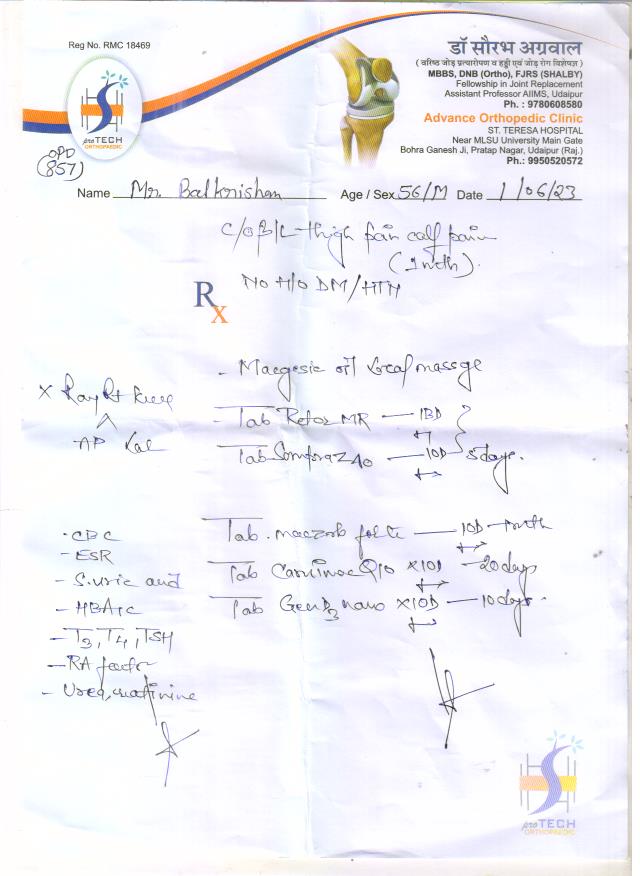 Reg No. RMC 18469
डॉ सौरभ अग्रवाल
( वरिष्ठ जोड़ प्रत्यारोपण व हड्डी एवं जोड़ रोग विशेषज्ञ )
MBBS, DNB (Ortho), FJRS (SHALBY)
Fellowship in Joint Replacement
Assistant Professor AIIMS, Udaipur
Ph. : 9780608580
Advance Orthopedic Clinic
ST. TERESA HOSPITAL
Near MLSU University Main Gate
Bohra Ganesh Ji, Pratap Nagar, Udaipur (Raj.)
Ph.: 9950520572
proTECH
ORTHOPAEDIC
OPD
(857)
Name Mr. Balkrishan Age / Sex 56/M Date 1/06/23
C/O B/L thigh pain calf pain
(1mth).
NO H/O DM/HTN
Rx
- Macgesic oil local massage
X Ray Rt knee
AP Lat
- Tab Retoz MR — 1BD
Tab Sompraz 40 — 1OD 5 days.
- CBC
- ESR
- S. uric acid
- HBA1C
- T3, T4, TSH
- RA factor
- Urea, creatinine
Tab. — 1OD — 1mth
Tab Carnivac Q10 x 1OD — 20 days
Tab Gen D3 nano x 1OD — 10 days.
proTECH
ORTHOPAEDIC